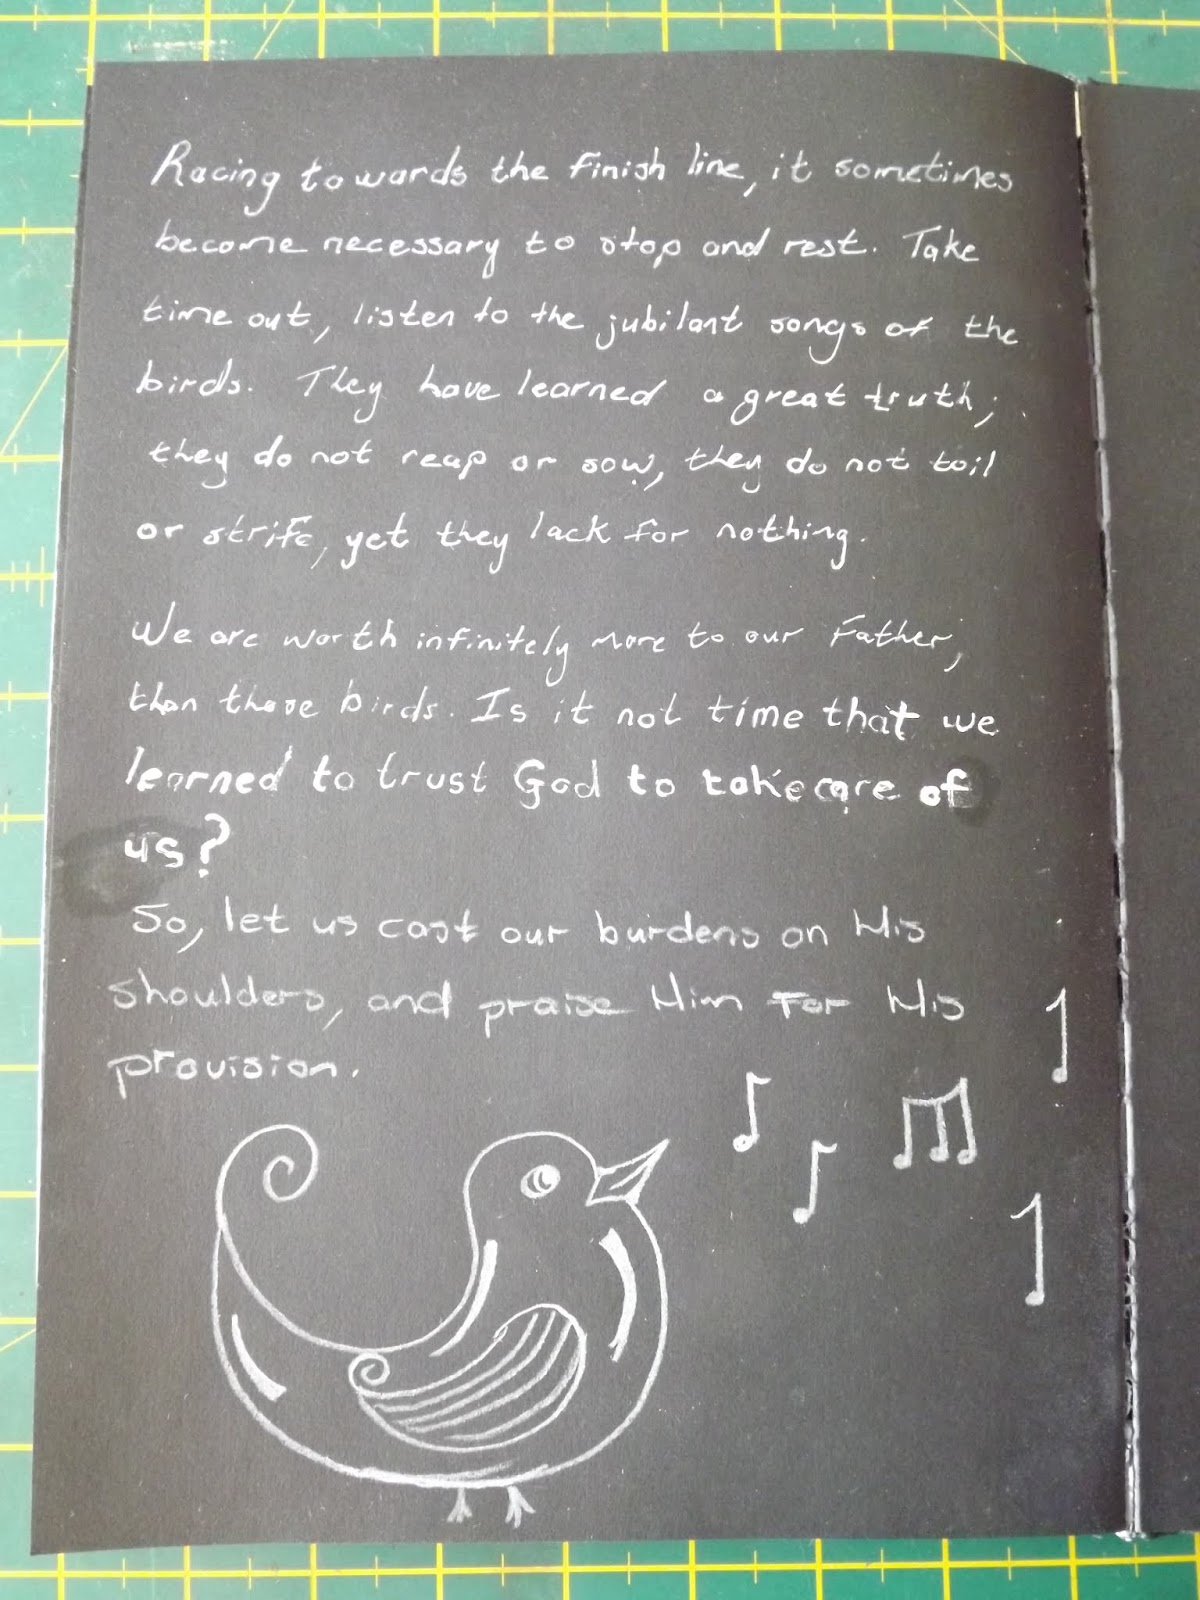 Racing towards the finish line, it sometimes
become necessary to stop and rest. Take
time out, listen to the jubilant songs of the
birds. They have learned a great truth;
they do not reap or sow, they do not toil
or strife, yet they lack for nothing.
We are worth infinitely more to our Father,
than those birds. Is it not time that we
learned to trust God to take care of
us?
So, let us cast our burdens on His
shoulders, and praise Him for His
provision.